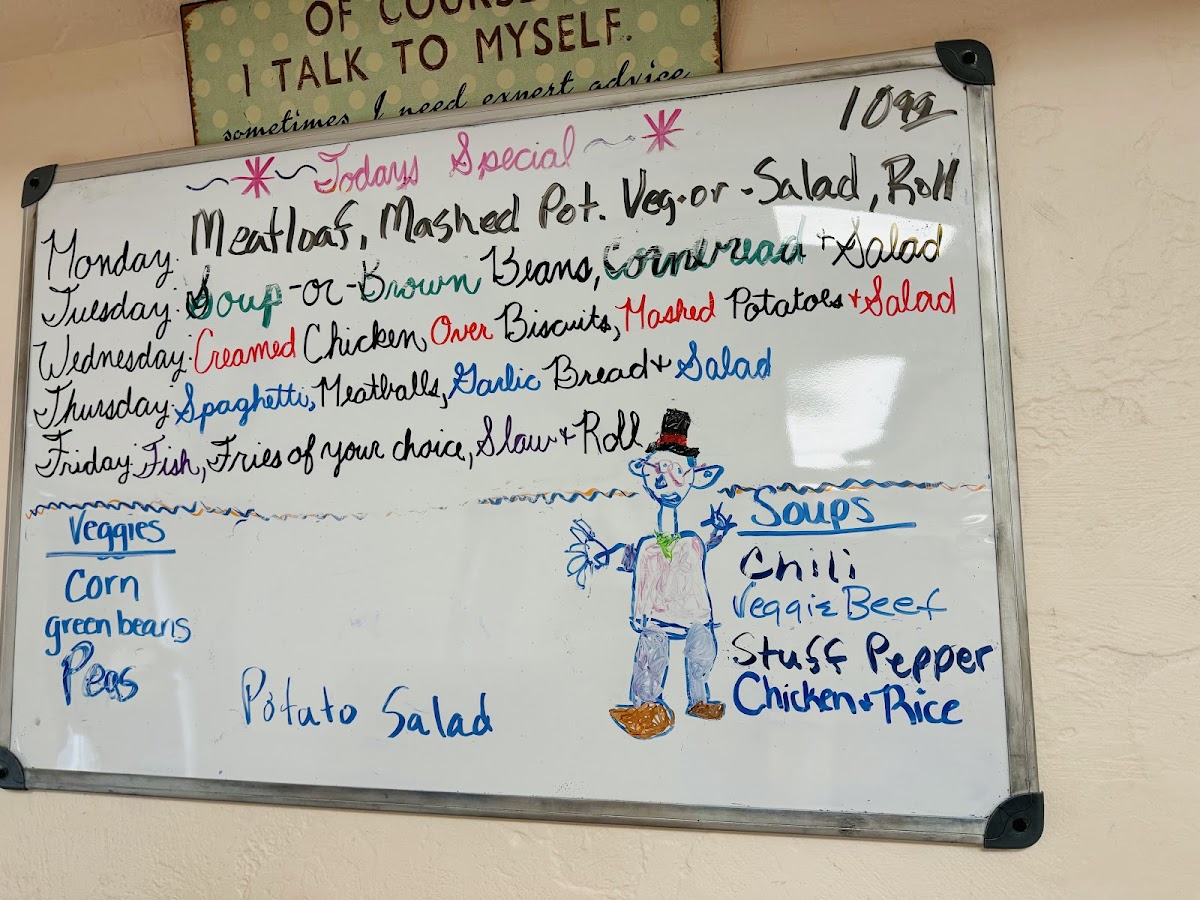 OF COURSE
I TALK TO MYSELF.
sometimes I need expert advice
10 99
Todays Special
Monday: Meatloaf, Mashed Pot. Veg-or-Salad, Roll
Tuesday: Soup-or-Brown Beans, Cornbread + Salad
Wednesday: Creamed Chicken Over Biscuits, Mashed Potatoes + Salad
Thursday: Spaghetti, Meatballs, Garlic Bread + Salad
Friday: Fish, Fries of your choice, Slaw + Roll
Veggies
Corn
green beans
Peas
Potato Salad
Soups
Chili
Veggie Beef
Stuff Pepper
Chicken + Rice